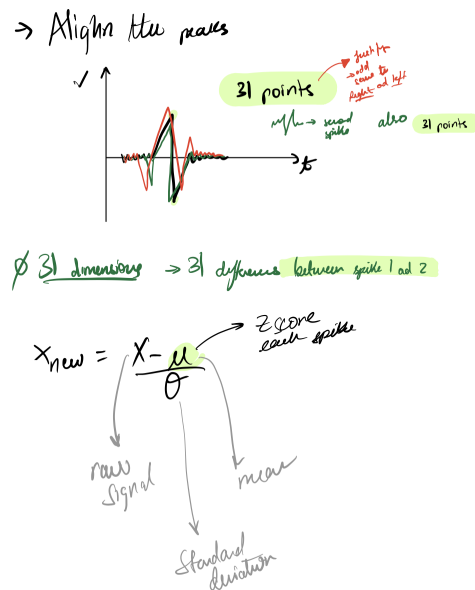 → Alighn the peaks
V
31 points
→ add
some to
Right ad left
→ second
spike
also 31 points
t
∅ 31 dimensions → 31 differences between spike 1 ad 2
Z score
each spike
X new = X - μ
σ
raw
signal
mean
standard
deviation